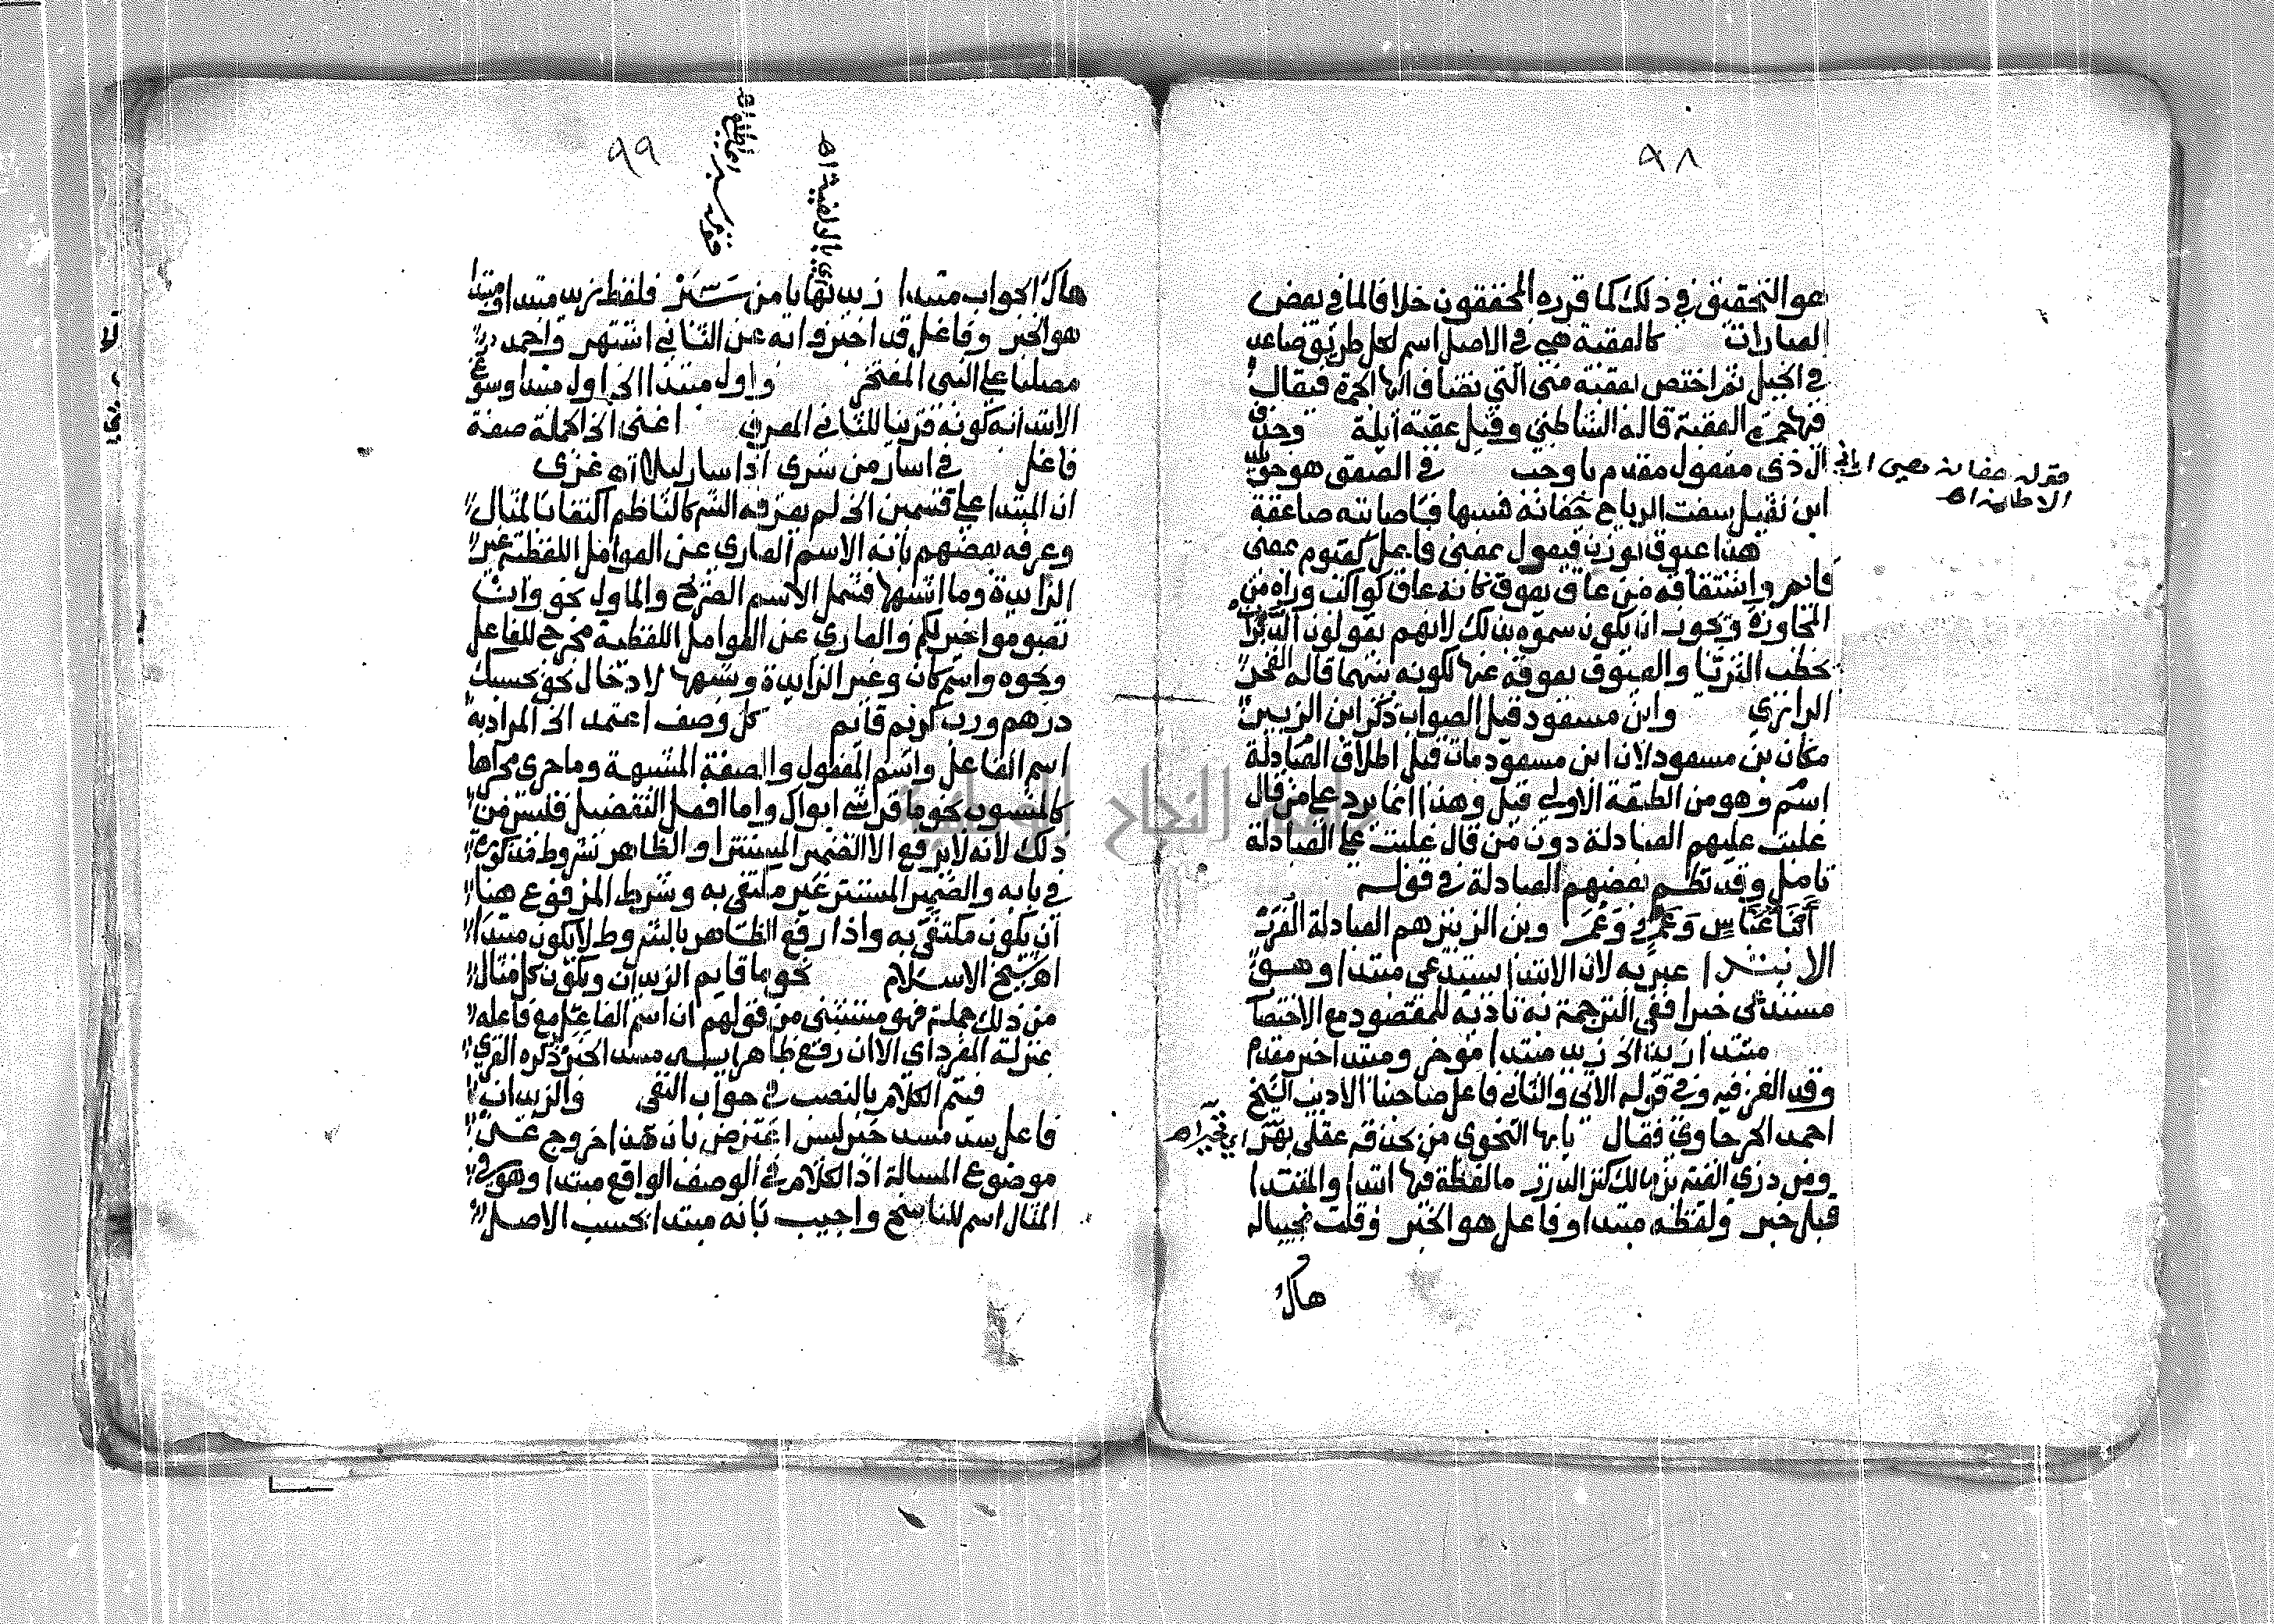 ٩٨
هو التحقيق في ذلك كما قرره المحققون خلافا لما في بعض
العبارات كالعقبة هي في الاصل اسم لكل طريق صاعد
في الجبل ثم اختص بعقبة منى التي تضاف اليها الجمرة فيقال
جمرة العقبة قاله الشاطبي وقيل عقبة ايلة وحذف
ال ذي مفعول مقدم باوجب في الصعق هو
ابن نفيل سفت الرياح جفانه فسبها فاصابته صاعقة
هذا عيوق بوزن فيعول بمعنى فاعل كقيوم بمعنى
قائم واشتقاقه من عاق يعوق كانه عاق كواكب وراه من
المجاوزة ويجوز ان يكون سموه بذلك لانهم يقولون الدبران
خطب الثريا والعيوق يعوقه عنها لكونه بينهما قاله الفخر
الرازي وابن مسعود قيل الصواب ذكر ابن الزبير
مكان بن مسعود لان ابن مسعود مات قبل اطلاق العبادلة
اسم وهو من الطبقة الاولى قيل وهذا انما يرد على من قال
غلبت عليهم العبادلة دون من قال غلبت على العبادلة
تامل وقد نظم بعضهم العبادلة في قوله
ابنا عباس وعمرو وعمر وبن الزبير هم العبادلة الغرر
الابتداء عبر به لان الابتدا يستدعي مبتدا وهو
يستدعي خبرا ففي الترجمة به تادية للمقصود مع الاختصار
مبتدا زيد الخ زيد مبتدا موخر ومبتدا خبر مقدم
وقد الغز فيه وفي قوله الاتي والثاني فاعل صاحبنا الاديب الشيخ
احمد الجرجاوي فقال يايها النحوي من حذقه عقلي بهر
ومن دري الفية بن مالك كنز الدرر ما لفظة فيها ابتدا والمبتدا
قبل خبر ولفظه مبتدا وفاعل هو الخبر وقلت مجيبا له
هاك
قوله جفانه
الاطعمة اه
اي تحير اه
٩٩
بالالفية اه
قوله
هاك الجواب مبتدا زيد بها يا من سبر فلفظ زيد مبتدا ومبتدا
هو الخبر وفاعل قد اخبروا به عن الثاني اشتهر واحمد
مصليا على النبي المفتخر واول مبتدا الخ اول مبتدا وسوغ
الابتدا به كونه قرينا للثاني المعرف اغنى الخ الجملة صفة
فاعل في اسار من سرى اذا سار ليلا اه غزي
ان المبتدا على قسمين الخ لم يعرفه الشر كالناظم اكتفا بالمثال
وعرفه بعضهم بانه الاسم العاري عن العوامل اللفظية غير
الزايدة وما اشبهها فشمل الاسم الصريح والماول نحو وان
تصوموا خير لكم والعاري عن العوامل اللفظية مخرج للفاعل
ونحوه واسم كان وغير الزايدة وشبهها لادخال نحو بحسبك
درهم ورب كريم قايم كل وصف اعتمد الخ المراد به
اسم الفاعل واسم المفعول والصفة المشبهة وما جرى مجراها
كالمنسوب نحو ما قرشي ابواك واما افعل التفضيل فليس من
ذلك لانه لا يرفع الا الضمير المستتر او الظاهر بشروط مذكورة
في بابه والضمير المستتر غير مكتفي به وشرط المرفوع هنا
ان يكون مكتفى به واذا رفع الظاهر بالشروط لا يكون مبتدا
اه شيخ الاسلام نحو ما قايم الزيدان ويكون كل مثال
من ذلك جملة فهو مستثنى من قولهم ان اسم الفاعل مع فاعله
بمنزلة المفرد اي الا ان رفع ظاهرا يسد مسد الخبر ذكره الغزي
فيتم الكلام بالنصب في جواب النفي والزيدان
فاعل سد مسد خبر ليس اعترض بان هذا خروج عن
موضوع المسالة اذ الكلام في الوصف الواقع مبتدا وهو في
المثال اسم للناسخ واجيب بانه مبتدا بحسب الاصل